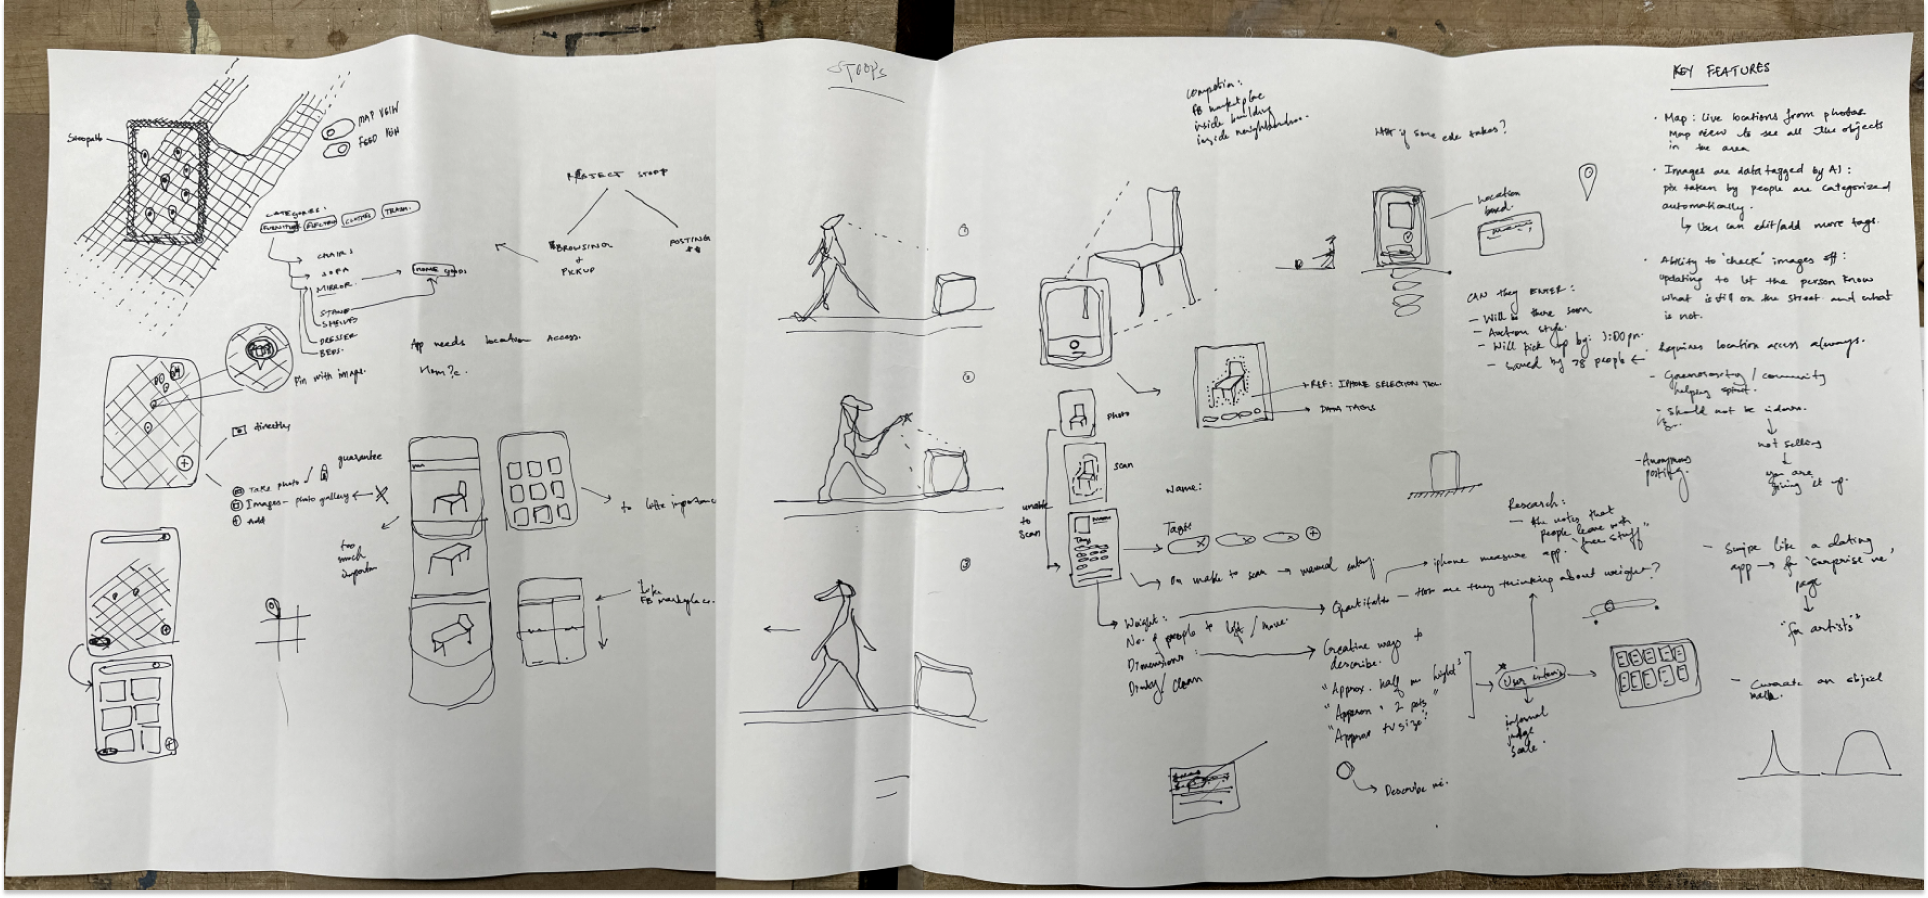 STOOPS
MAP VIEW
FEED VIEW
CATEGORIES:
FURNITURE
CLOTHES
TRASH.
CHAIRS
SOFA
MIRROR
HOME goods
SHELVES
DRESSER
BEDS.
PROJECT STOOP
BROWSING
+
PICKUP
POSTING
App needs location access.
Pin with image.
directly
Take photo
guarantee
Images - photo gallery
Add
too
much
important
to little importance
Like
FB marketplace.
1
2
3
Competition:
FB marketplace
inside building
inside neighborhoo..
What if some one takes?
Location
based.
CAN they ENTER:
- Will be there soon
- Auction style.
- Will pick up by: 3:00pm.
- Saved by 28 people
REF: IPHONE SELECTION TOOL.
DATA TAGS
Photo
Scan
unable
to
scan
Name:
Tags:
Tags
manual entry
iphone measure app.
Weight:
No. of people to lift / move.
Dimensions:
Dirty / Clean
Quantifable - How are they thinking about weight?
Creative ways to
describe.
"Approx. half my height"
"Approx. 2 pots"
"Approx TV size"
User
informal
judge
scale.
Describe me.
Research:
- the notes that
people leave with
"free stuff"
KEY FEATURES
• Map: Live locations from photos
Map view to see all the objects
in the area
• Images are data tagged by AI:
pix taken by people are categorized
automatically.
↳ User can edit/add more tags.
• Ability to 'check' images off:
updating to let the person know
what is still on the street and what
is not.
• Requires location access always.
- Generosity / community
helping spirit.
- Should not be
not selling
you are
giving it up.
- Anonymous
posting.
- Swipe like a dating
app → for 'surprise me'
page
"for artists"
- Curate an object